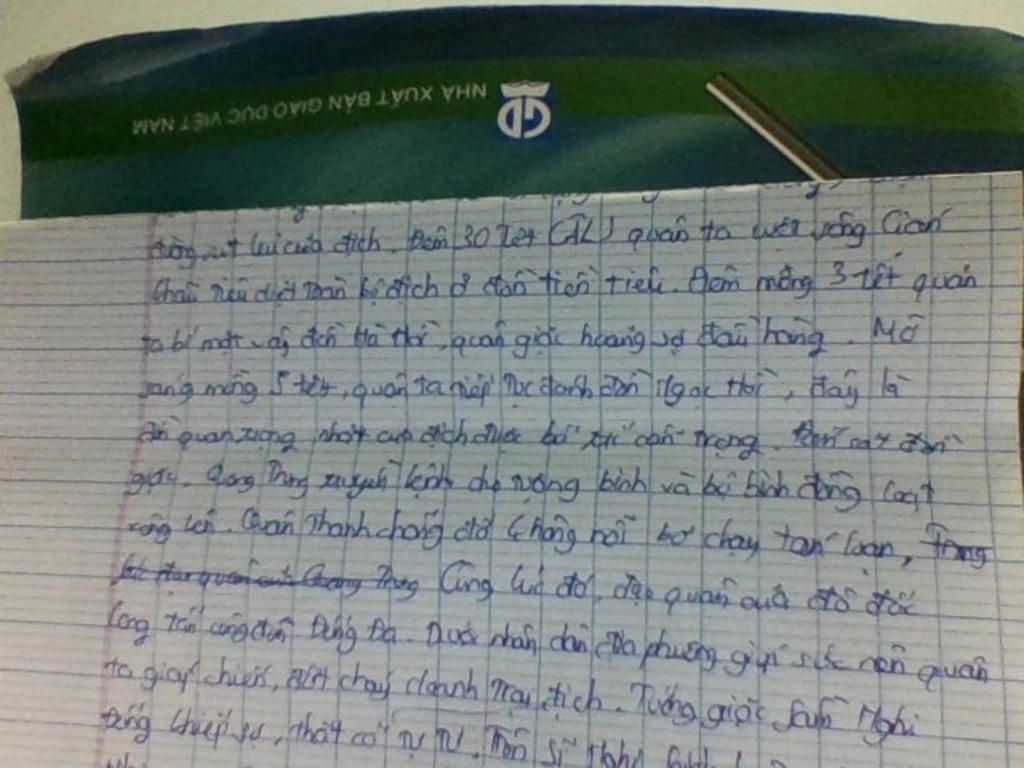 NHÀ XUẤT BẢN GIÁO DỤC VIỆT NAM
GD
đường rút lui của địch. Đêm 30 Tết (ÂL) quân ta vượt sông Gián
Khẩu tiêu diệt toàn bộ địch ở đồn tiền tiêu. Đêm mồng 3 tết quân
ta bí mật vây đồn Hà Hồi, quân giặc hoảng sợ đầu hàng. Mờ
sáng mồng 5 tết, quân ta tiếp tục đánh đồn Ngọc Hồi, đây là
đồn quan trọng nhất của địch được bố trí cẩn trọng. Đến sát đồn
giặc, Quang Trung truyền lệnh cho tượng binh và bộ binh đồng loạt
xông lên. Quân Thanh chống đỡ không nổi bỏ chạy tán loạn,
Cùng lúc đó, đạo quân của đô đốc
Long tấn công đồn Đống Đa. Được nhân dân địa phương giúp sức nên quân
ta giáp chiến, đốt cháy doanh trại địch. Tướng giặc Sầm Nghi
Đống khiếp sợ, thắt cổ tự tử. Tôn Sĩ Nghị